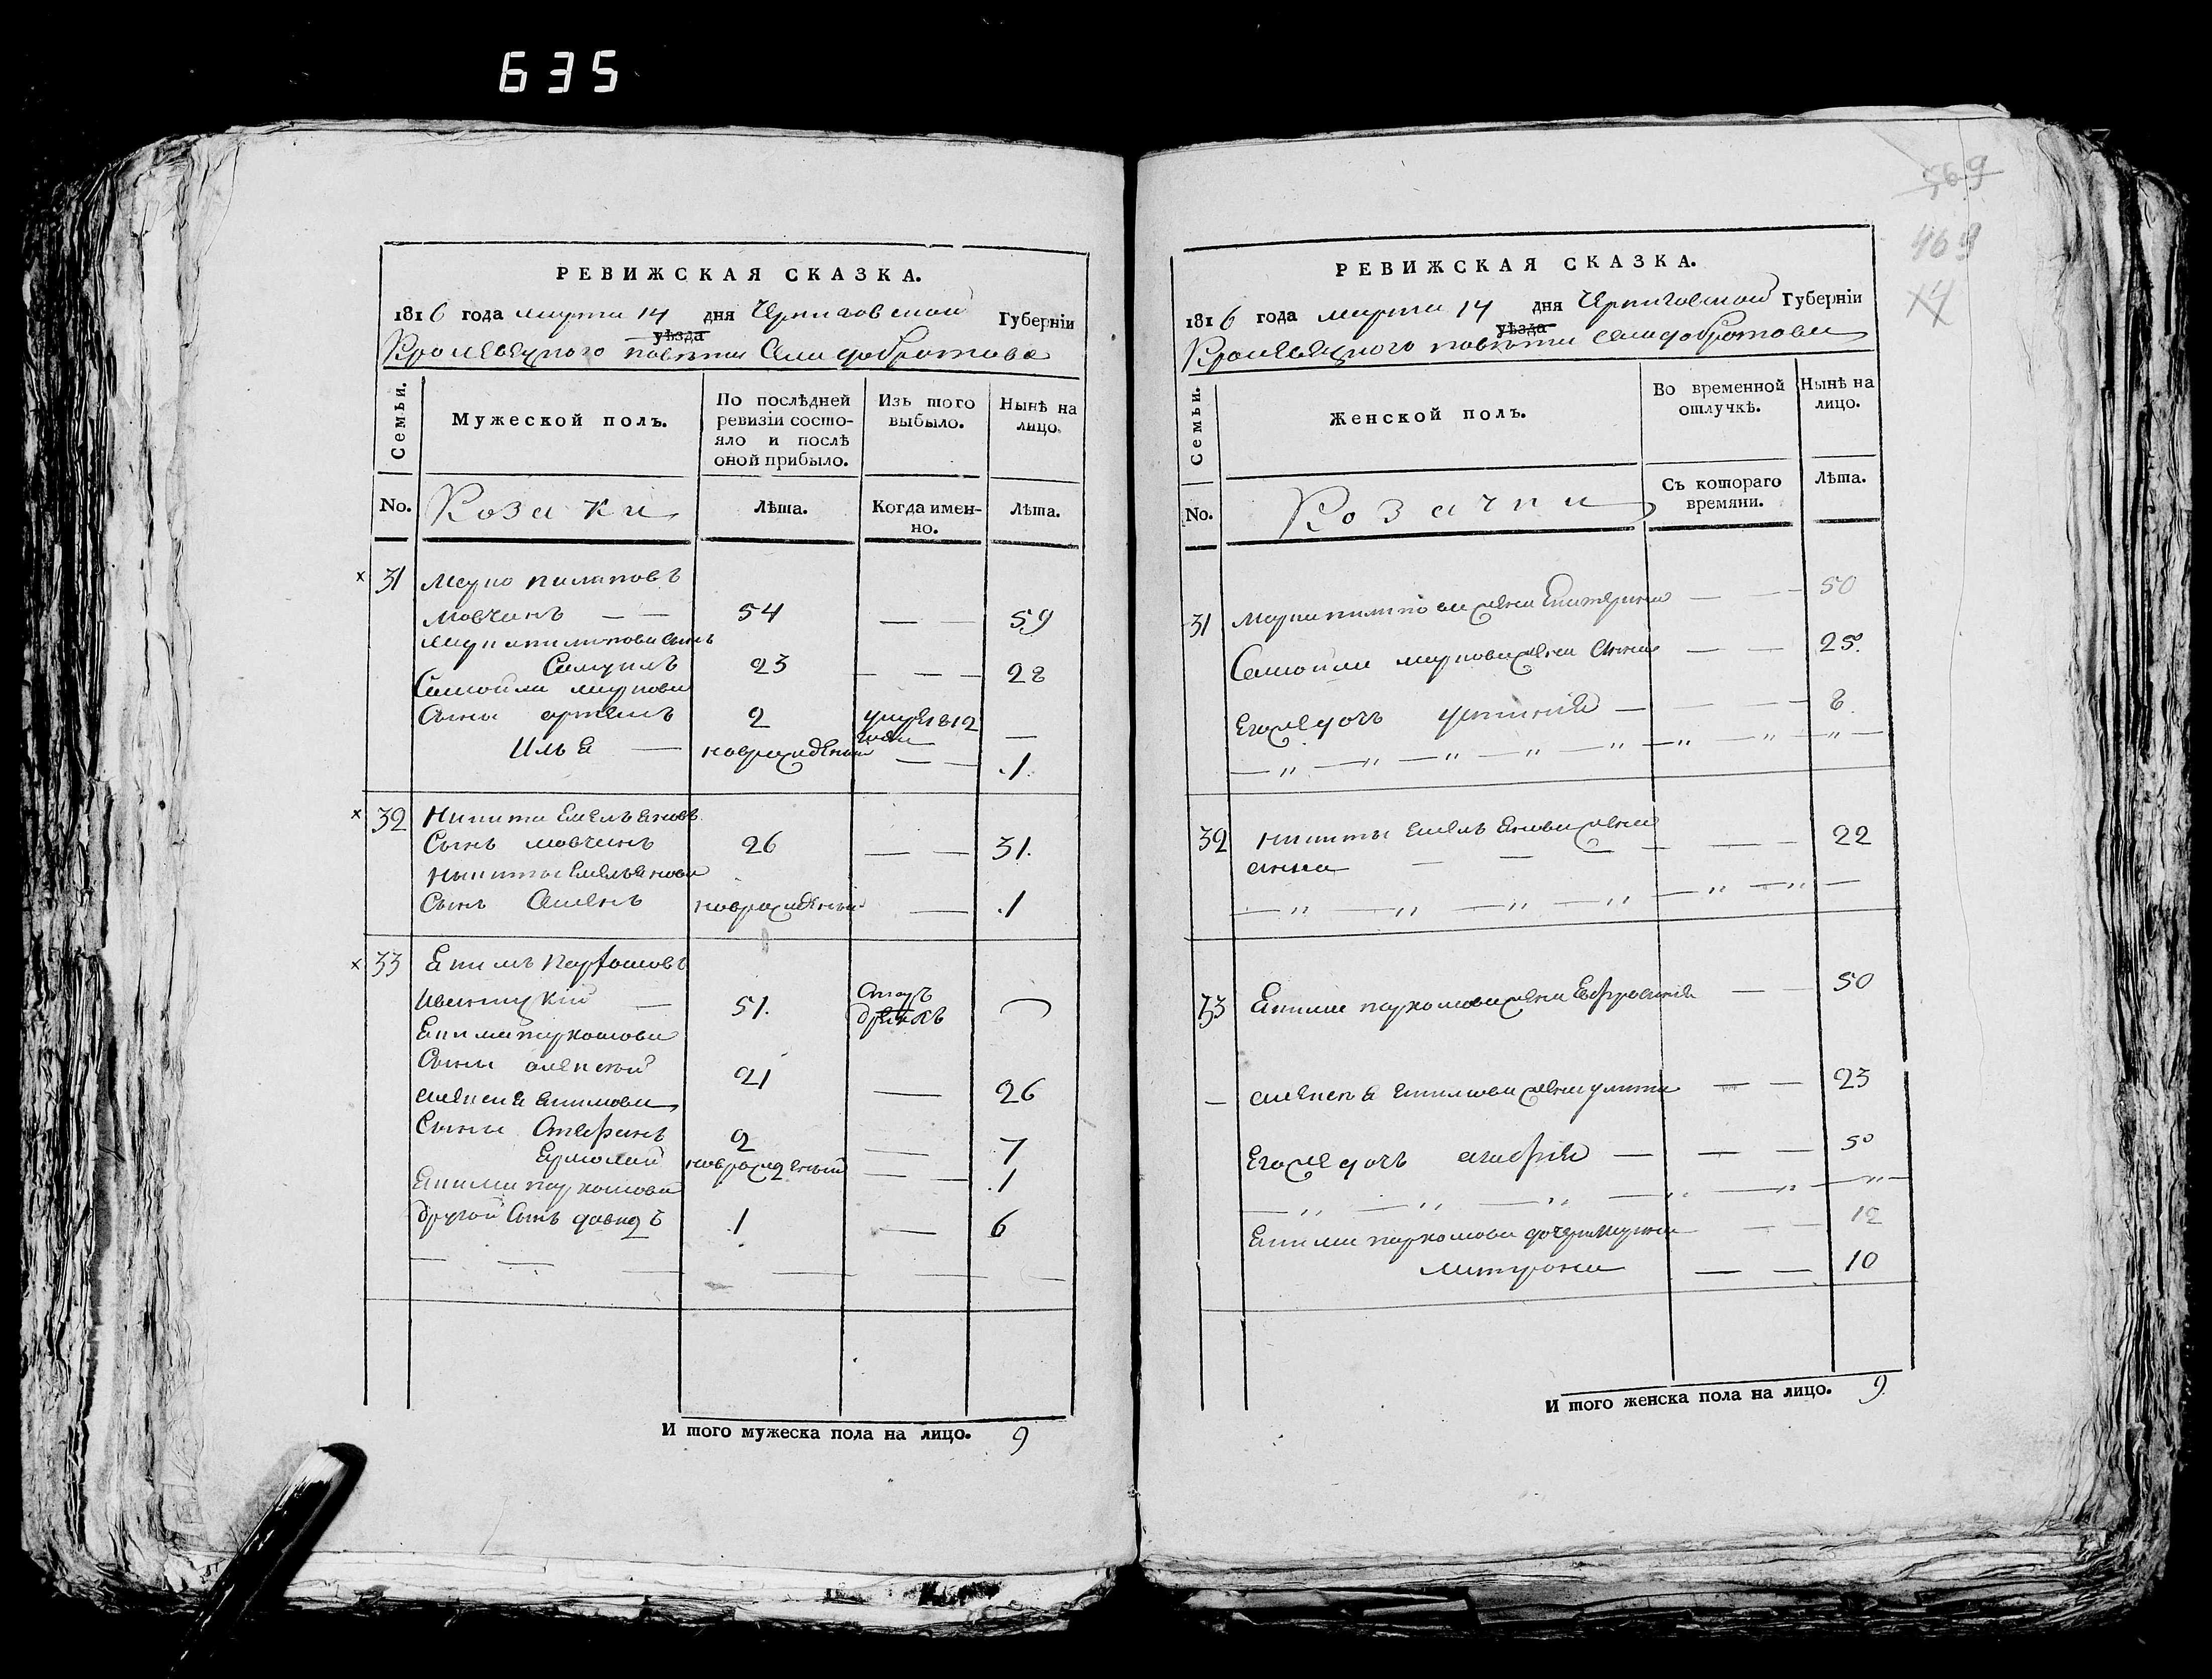 635
РЕВИЖСКАЯ СКАЗКА.
1816 года марта 14 дня Черниговской Губерніи
уѣзда
Кролевецкого повѣта Села добротова
Семьи.
Мужеской полъ.
По послѣдней ревизіи состояло и послѣ оной прибыло.
Изъ того выбыло.
Нынѣ на лицо.
No. Козаки
Лѣта.
Когда именно.
Лѣта.
х 31 Марко пилиповъ
Мовчанъ — — 54 — — 59
Марка пилипова сынъ
Самуилъ 23 — — — 28
Самойла маркова
Сыны артемъ 2 1812 —
Илья — новрожденый — — .1.
х 32 Никита Емельяновъ
Сынъ мовчанъ 26 — — 31.
Никиты Емельянова
Сынъ Семенъ новрожденый — .1
х 33 Якимъ Пархомовъ
Иваницкий — 51.
Якима пархомова
Сыны алексей 21 — 26
алексея якимова
Сыны Стефанъ 2 — 7
Ермолай новрожденый — — .1
Якима пархомова
другой Сынъ давидъ .1 — 6
И того мужеска пола на лицо. 9
569
469
РЕВИЖСКАЯ СКАЗКА.
1816 года марта 14 дня Черниговской Губерніи
уѣзда
Кролевецкого повѣта села добротова
Семьи.
Женской полъ.
Во временной отлучкѣ.
Нынѣ на лицо.
No. Козачки
Съ котораго времяни.
Лѣта.
31 Марка пилипова жена Екатерина — — 50
Самойла маркова жена Анна — — 25.
Егоже дочь устинія — — — 8.
32 Никиты Емельянова жена
анна — — — — — — 22
33 Якима пархомова жена Евфросинія — — 50
— алексея якимова жена улита — — 23
Егоже дочь агафія — — — 5
Якима пархомова дочери Марина — — 12
матрона — — 10
И того женска пола на лицо. 9